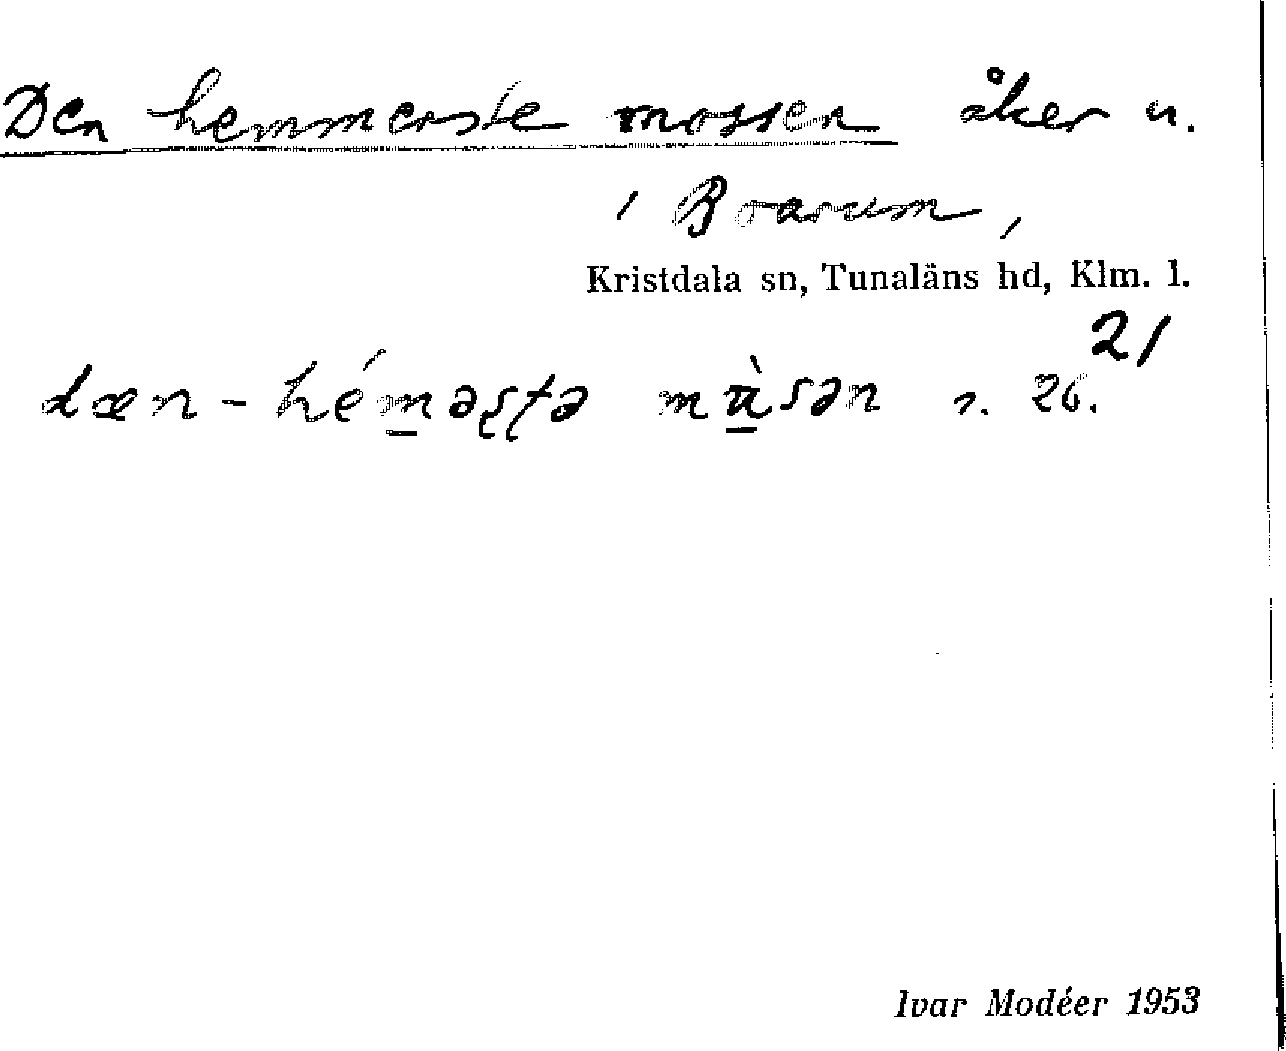 Den hemmerste mossen åker n.
i Braarum,
Kristdala sn, Tunaläns hd, Klm. l.
21
dæn-héməʂʈə mùsən s. 26.
Ivar Modéer 1953